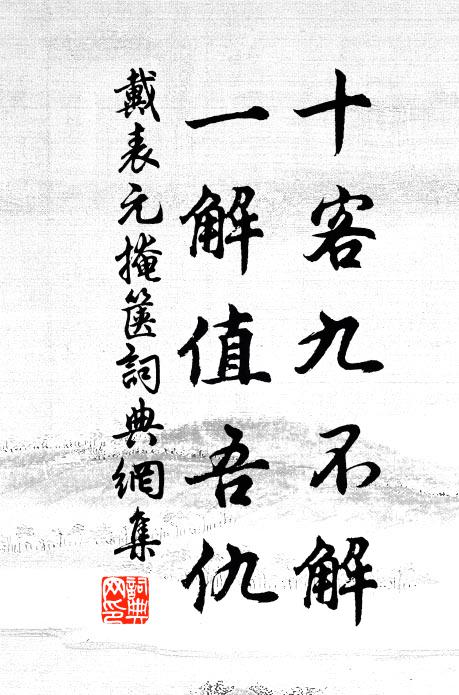 十客九不解
一解值吾仇
戴表元掩箧詞典網集
詞典網印